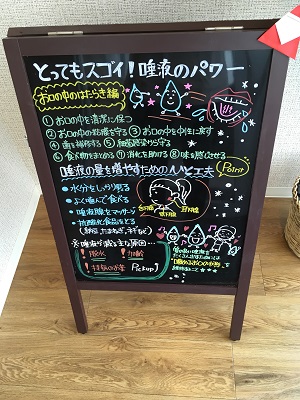 とってもスゴイ!唾液のパワー
お口の中のはたらき編
① お口の中を清潔に保つ
② お口の中の粘膜を守る ③ お口の中を中性に戻す
④ 歯を補修する ⑤ 細菌感染から守る
⑥ 食べ物をまとめる ⑦ 消化を助ける ⑧ 味を感じさせる
唾液の量を増やすための工夫
Point
・水分をしっかり取る
・よく噛んで食べる
・唾液腺をマッサージ
・抗酸化食品をとる
耳下腺
※唾液が減る主な原因…
! 脱水
! 加齢
! 持病のお薬
Pickup!